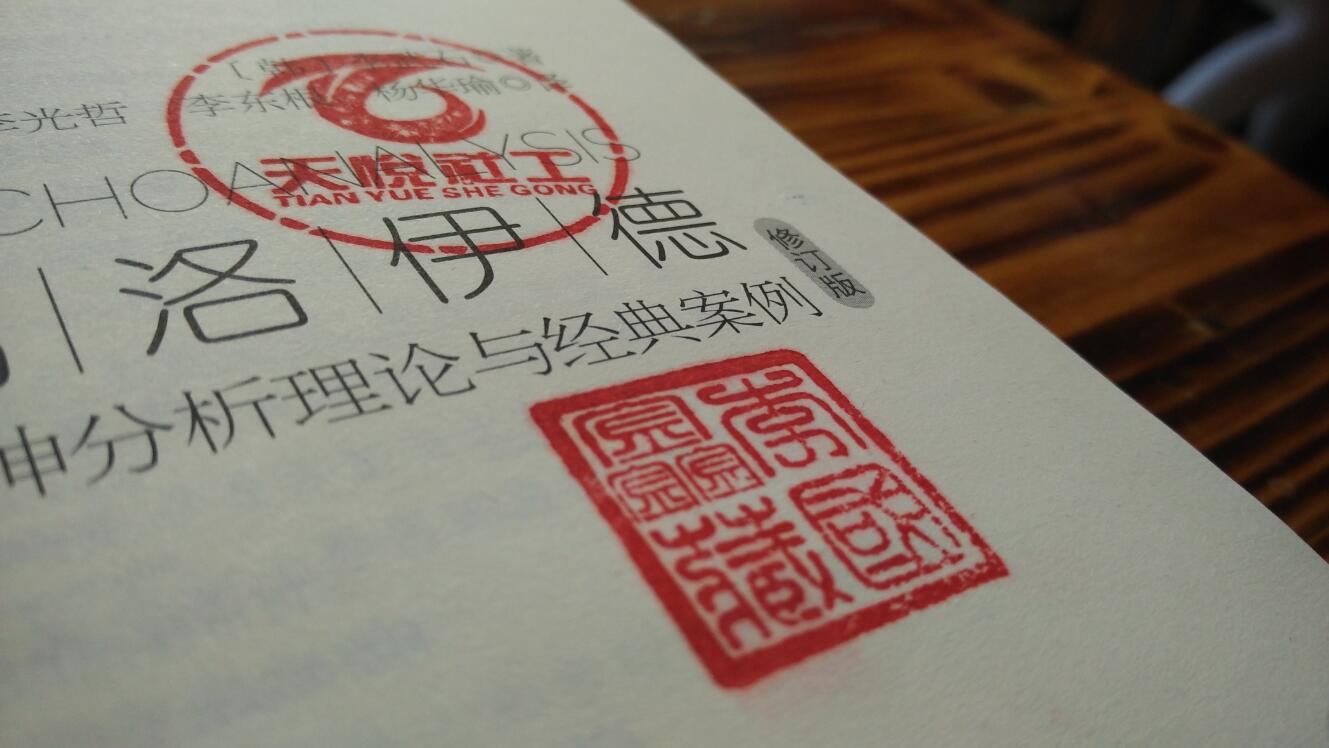 [韩] 李武石 著
李光哲 李东根 杨华瑜◎译
CHOANALYSIS
天悦社工
TIAN YUE SHE GONG
洛|伊|德
修订版
神分析理论与经典案例
李國
藏